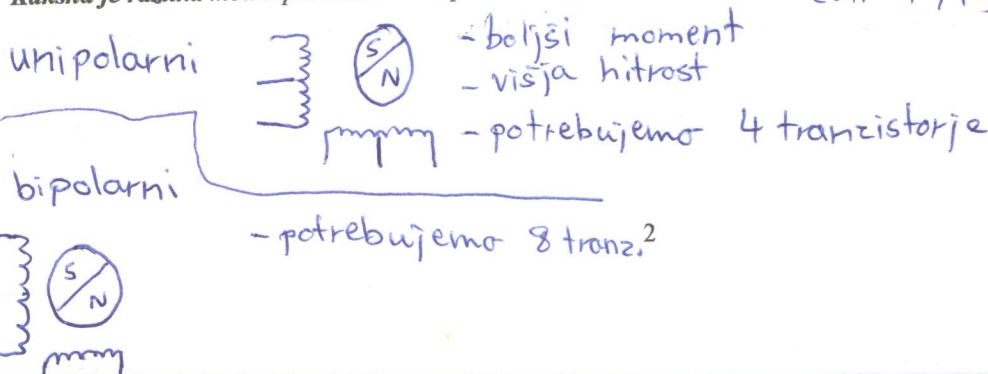 unipolarni
S
N
- boljši moment
- višja hitrost
- potrebujemo 4 tranzistorje
bipolarni
- potrebujemo 8 tranz.2
S
N